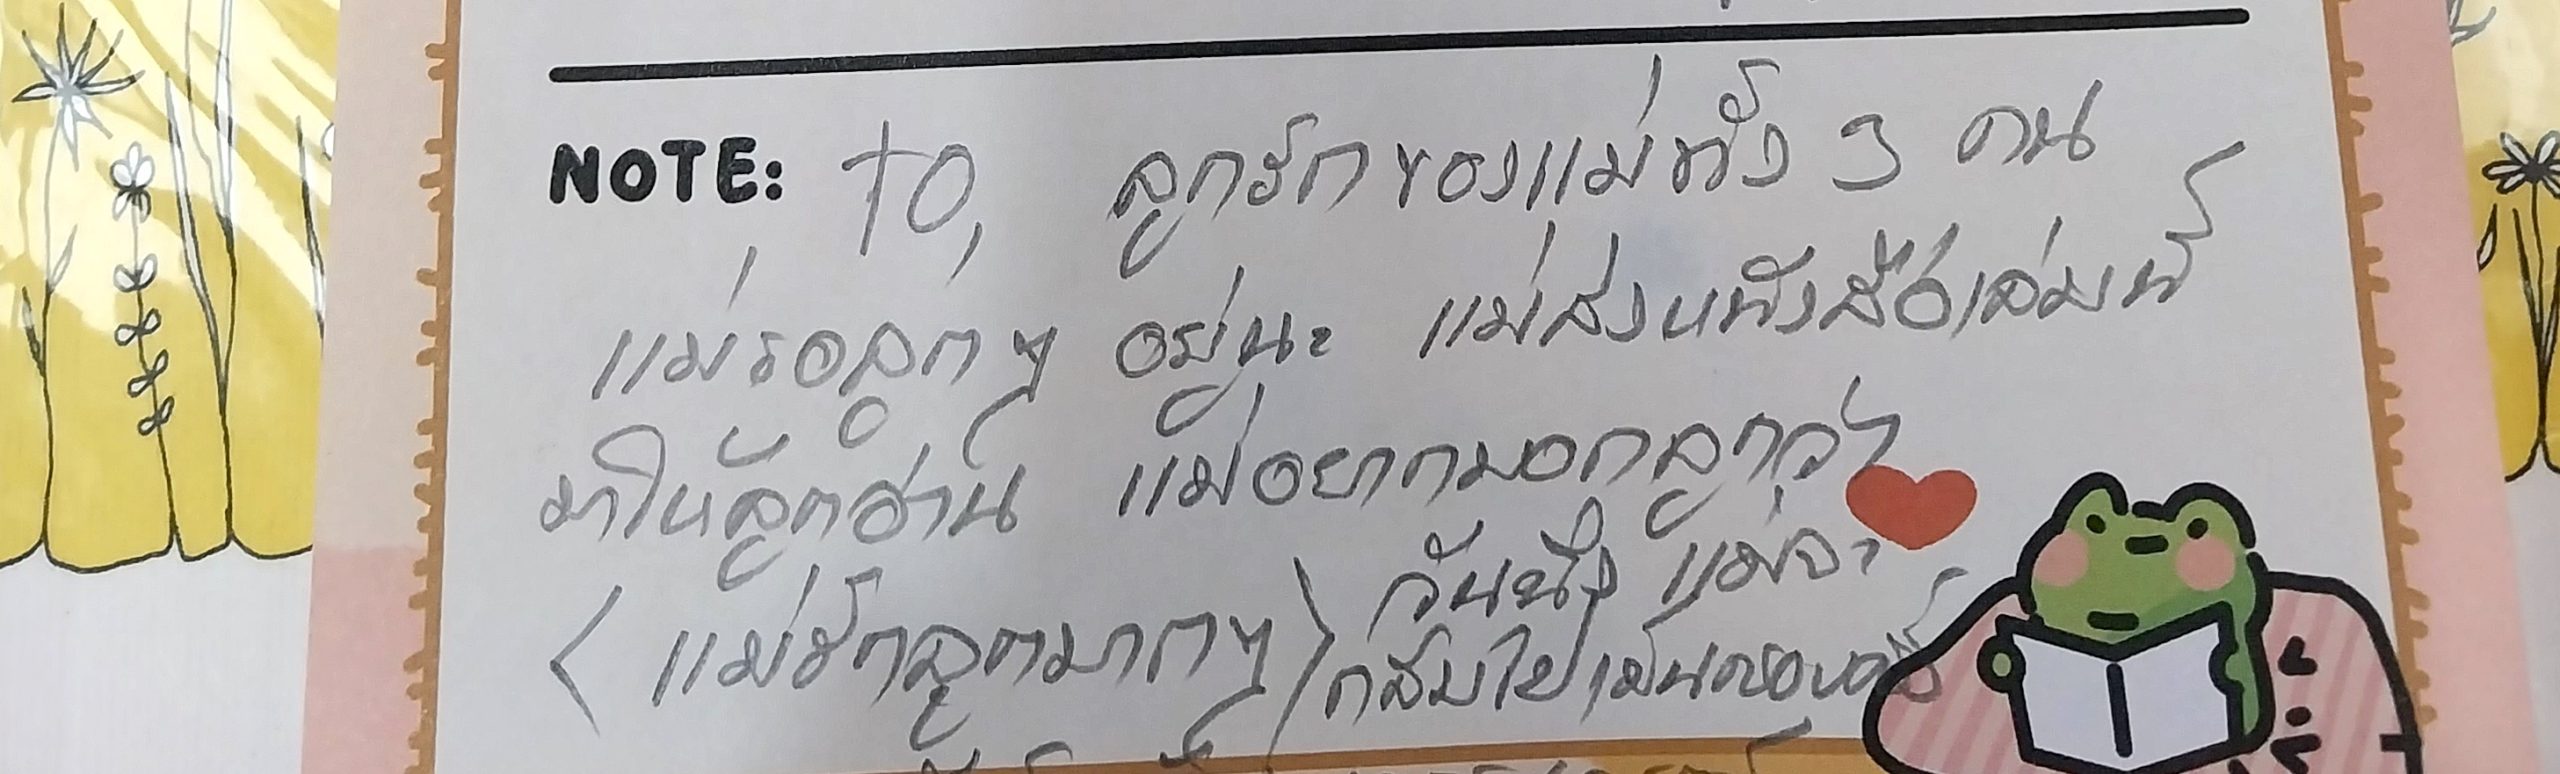 NOTE: TO, ลูกรักของแม่ทั้ง 3 คน
แม่รอลูกๆ อยู่นะ แม่ส่งหนังสือเล่มนี้
มาให้ลูกอ่าน แม่อยากบอกลูกว่า
<แม่รักลูกมากๆ> วันนึง แม่จะ
กลับไปเป็นครอบครัว